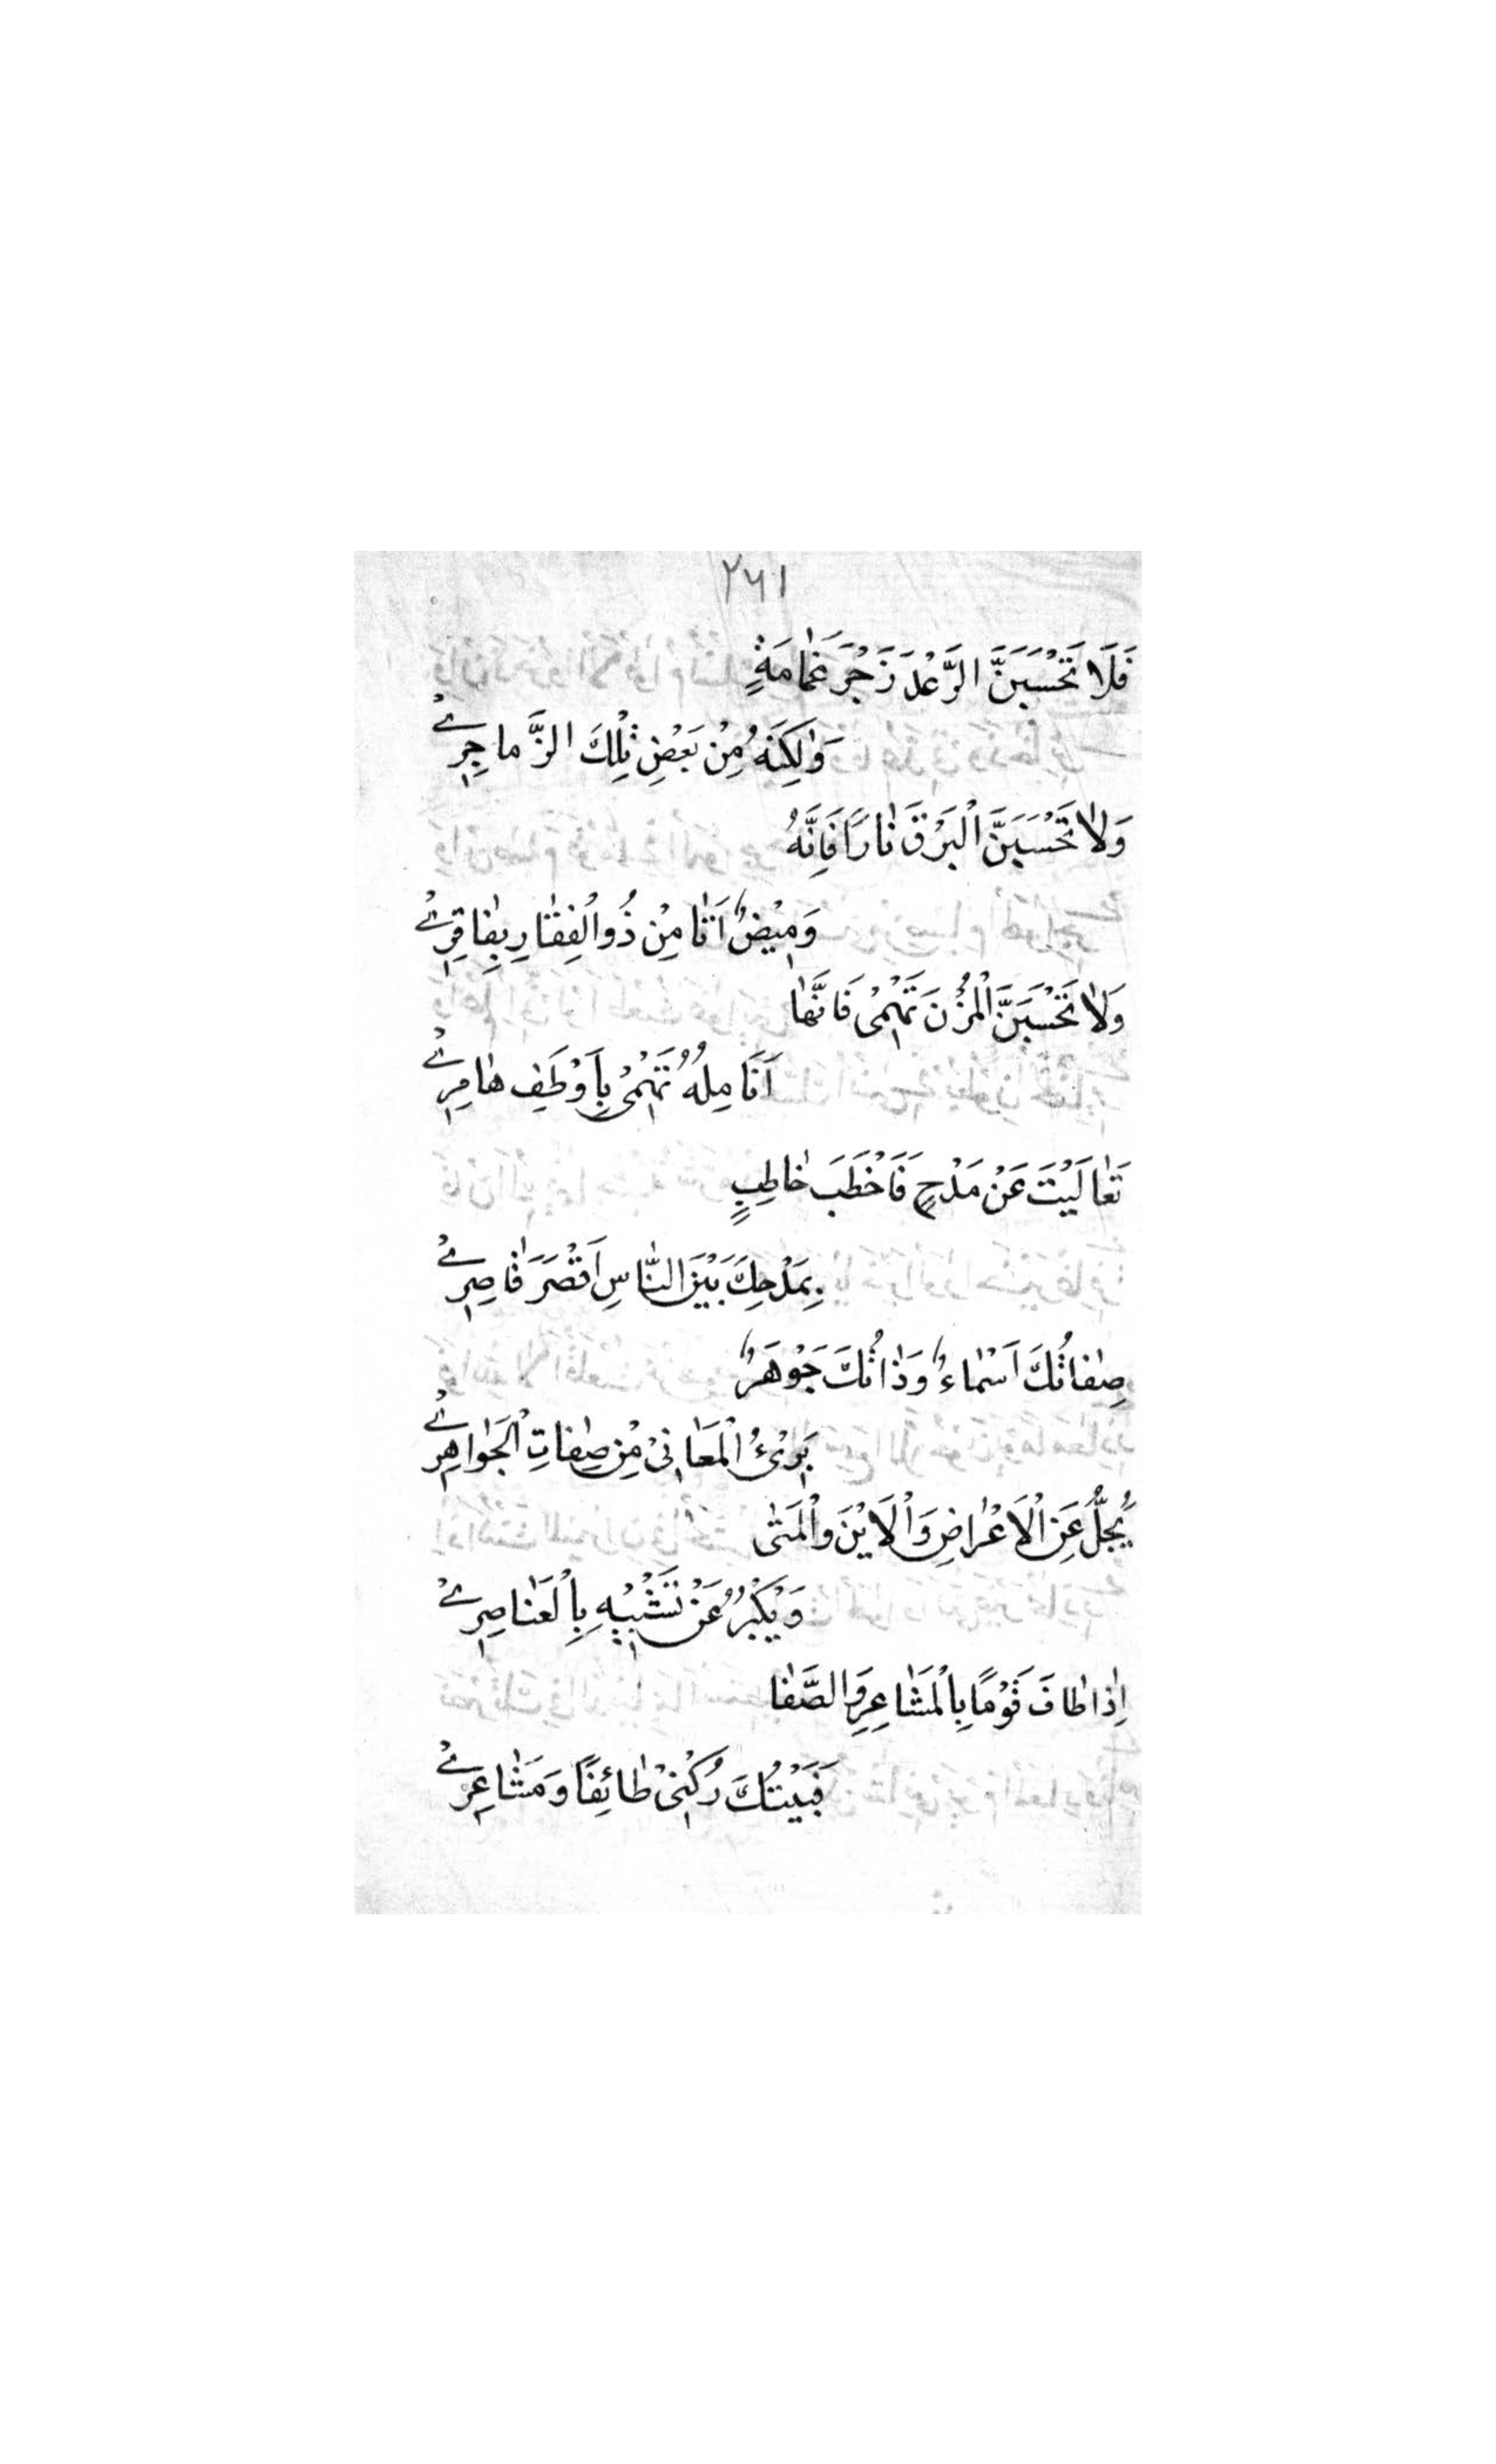 ٢٦١
فَلَا تَحْسَبَنَّ الرَّعْدَ زَجْرَ غَمَامَةٍ
وَلٰكِنَّهُ مِنْ بَعْضِ تِلْكَ الزَّماجِرِ
وَلا تَحْسَبَنَّ الْبَرْقَ نَارًا فَاِنَّهُ
وَمِيْضٌ اَتٰا مِنْ ذُو الْفِقٰارِ بِفٰاقِرِ
وَلٰا تَحْسَبَنَّ الْمُزْنَ تَهْمِیْ فَاِنَّهٰا
اَنَامِلُهُ تَهْمِیْ بِاَوْطَفِ هٰامِرِ
تَعٰالَيْتَ عَنْ مَدْحٍ فَاَخْطَبَ خٰاطِبٍ
بِمَدْحِكَ بَيْنَ النّٰاسِ اَقْصَرَ قٰاصِرِ
صِفٰاتُكَ اَسْمٰاءٌ وَذٰاتُكَ جَوْهَرٌ
بَرِیْءُ الْمَعٰانِیْ مِنْ صِفٰاتِ الْجَوٰاهِرِ
يُجَلُّ عَنِ الْاَعْرٰاضِ وَالْاَيْنَ وَالْمَتٰى
وَيَكْبُرُ عَنْ تَشْبِيْهِ بِالْعَنٰاصِرِ
اِذٰا طٰافَ قَوْمًا بِالْمَشٰاعِرِ وَالصَّفٰا
فَبَيْتُكَ رُكْنِیْ طٰائِفًا وَمَشٰاعِرِ